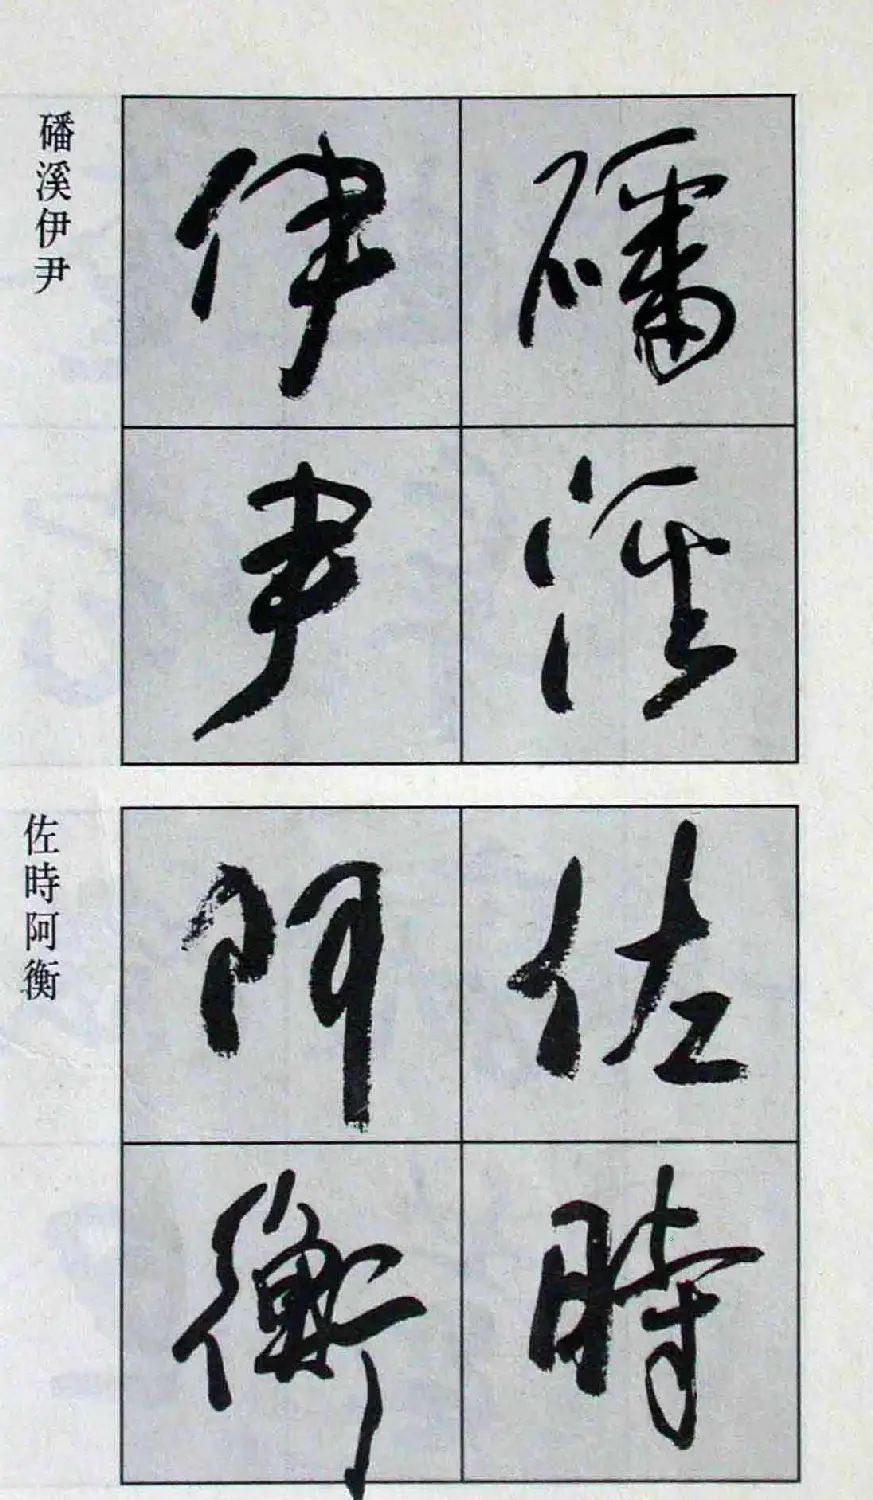 磻溪伊尹
磻溪
伊尹
佐時阿衡
佐時
阿衡